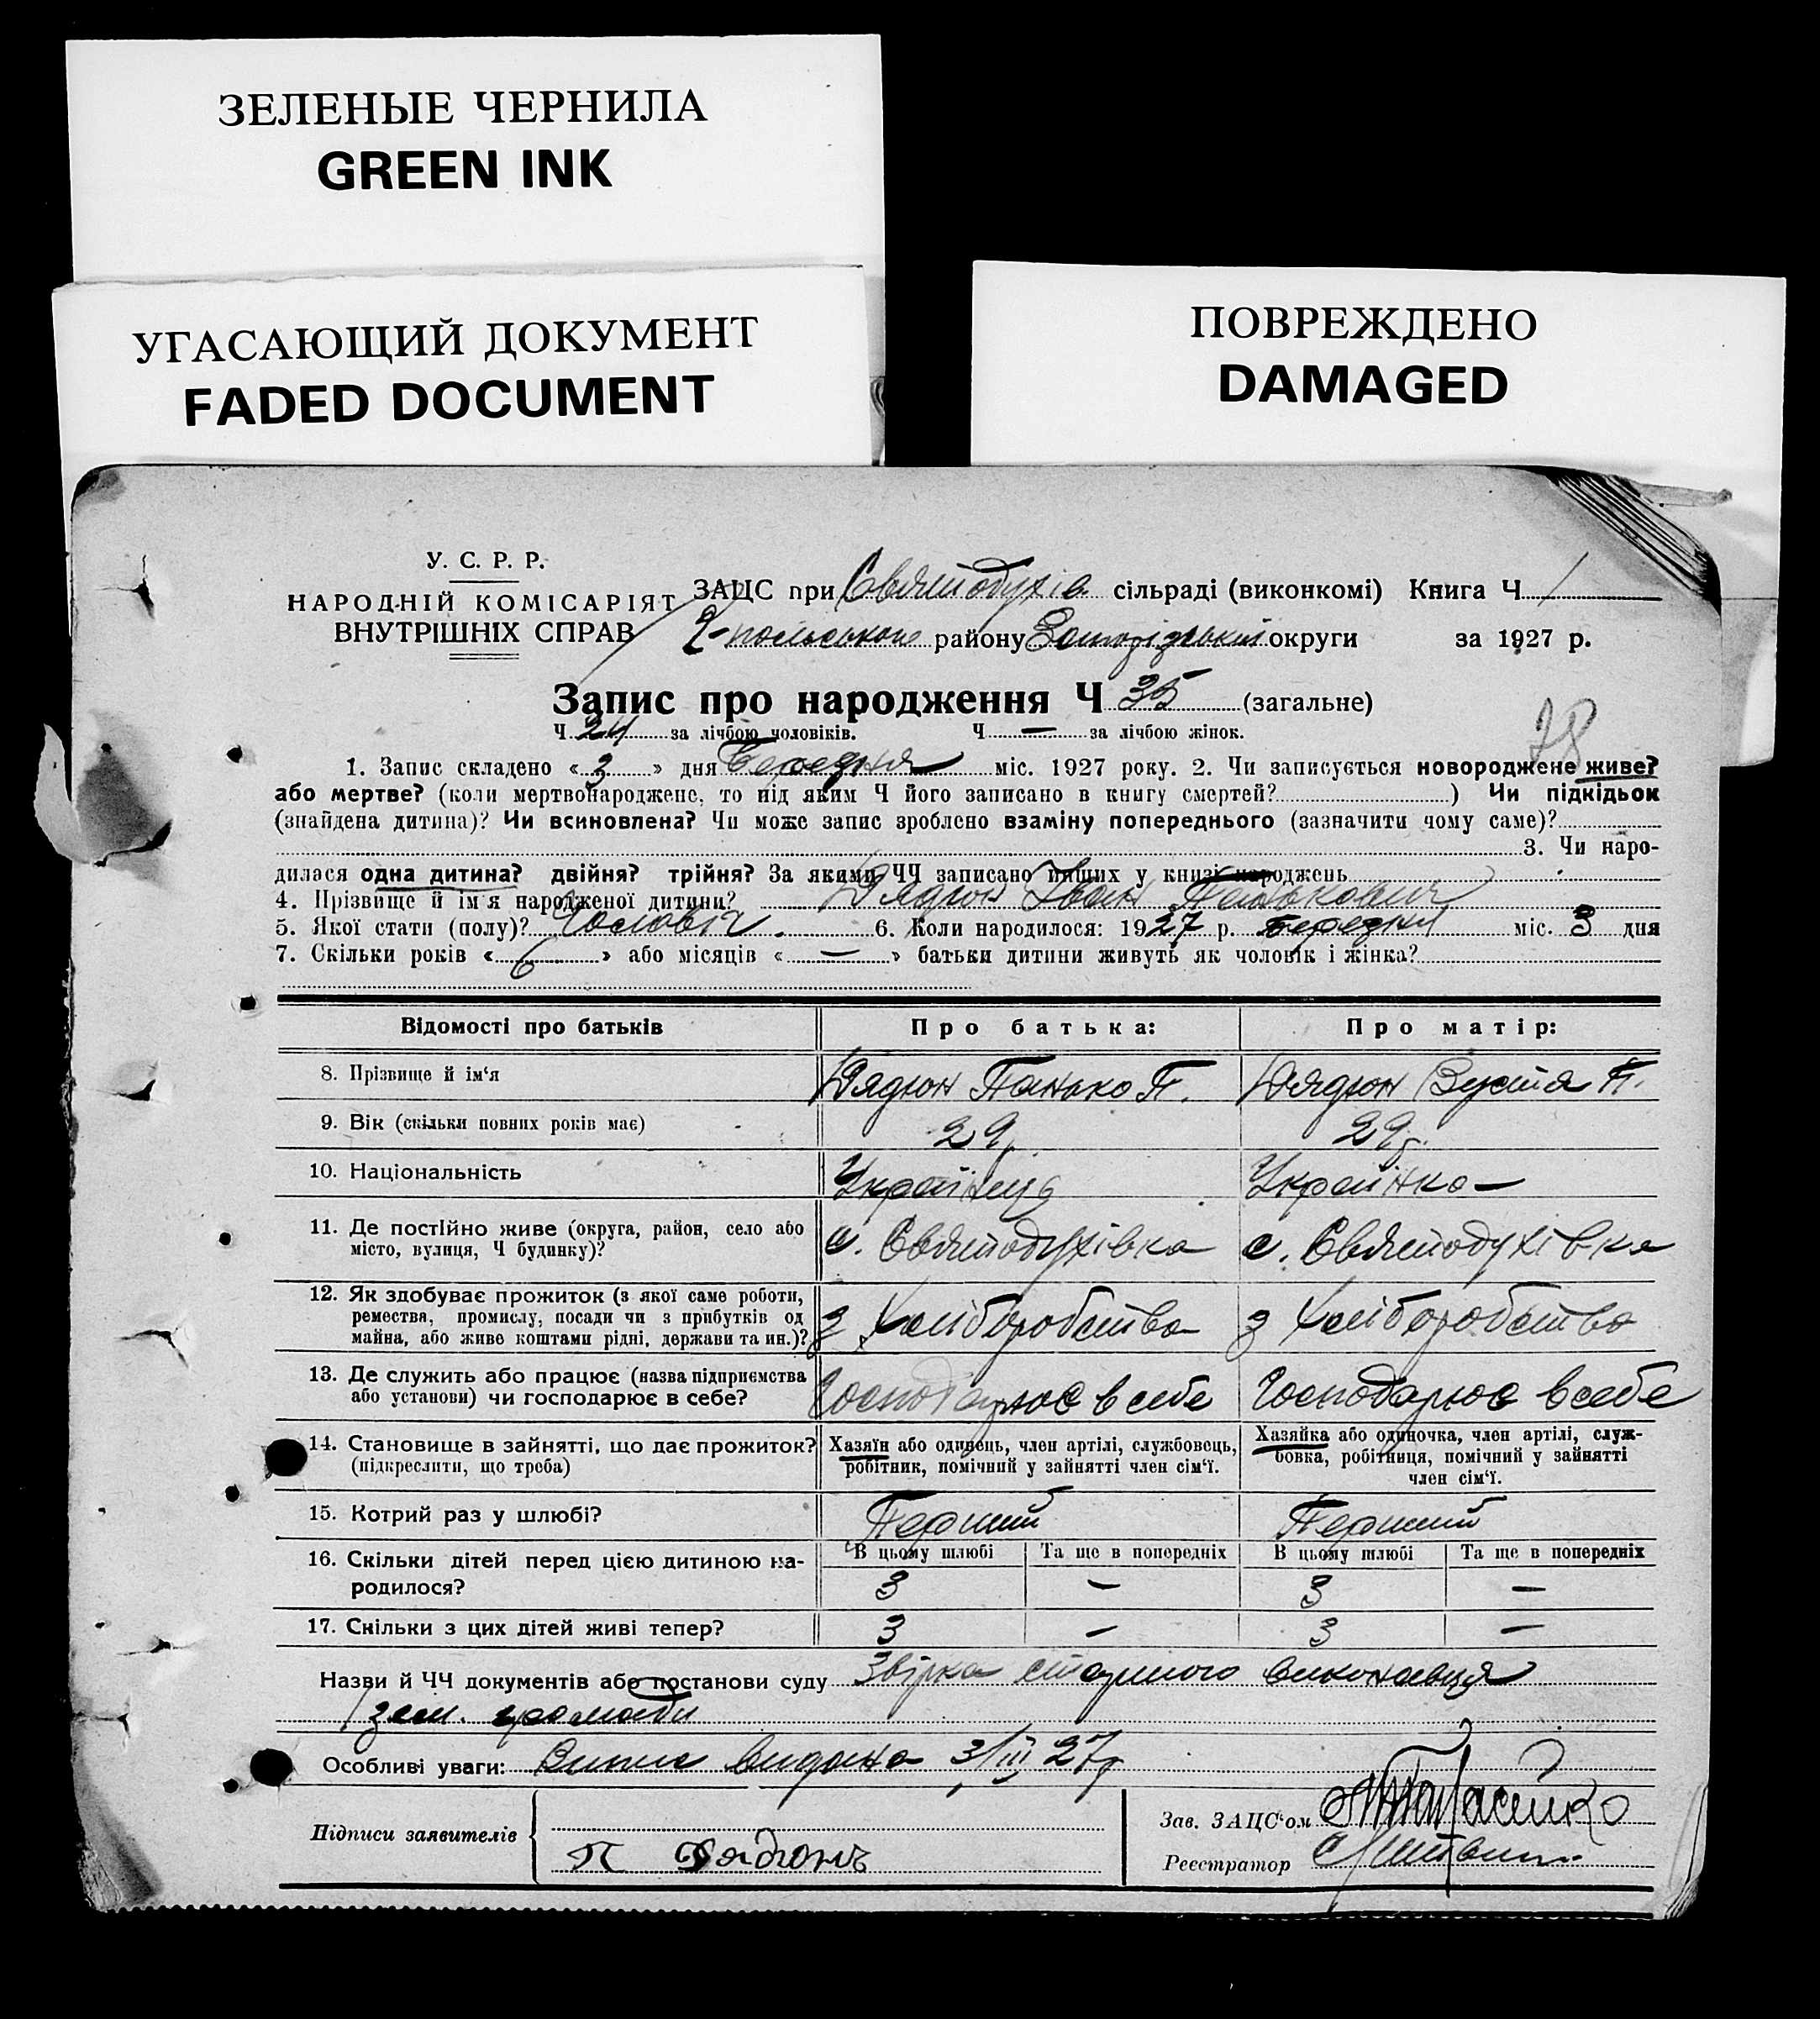 ЗЕЛЕНЫЕ ЧЕРНИЛА
GREEN INK
УГАСАЮЩИЙ ДОКУМЕНТ
FADED DOCUMENT
ПОВРЕЖДЕНО
DAMAGED
У. С. Р. Р.
НАРОДНІЙ КОМІСАРІЯТ
ВНУТРІШНІХ СПРАВ
ЗАЦС при Святодухів сільраді (виконкомі) Книга Ч 1
району Запорізький округи за 1927 р.
Запис про народження Ч 35 (загальне)
Ч 24 за лічбою чоловіків. Ч — за лічбою жінок.
78
1. Запис складено « 3 » дня Березня міс. 1927 року. 2. Чи записується новороджене живе?
або мертве? (коли мертвонароджене, то під яким Ч його записано в книгу смертей? ) Чи підкідьок
(знайдена дитина)? Чи всиновлена? Чи може запис зроблено взаміну попереднього (зазначити чому саме)?
3. Чи наро-
дилася одна дитина? двійня? трійня? За якими ЧЧ записано инших у книзі народжень
4. Прізвище й ім'я народженої дитини? Дядюн Іван Панькович
5. Якої стати (полу)? Чоловіч. 6. Коли народилося: 1927 р. Березня міс. 3 дня
7. Скільки років « 6 » або місяців « — » батьки дитини живуть як чоловік і жінка?
Відомості про батьків Про батька: Про матір:
8. Прізвище й ім'я Дядюн Панько П. Дядюн Вустя П.
9. Вік (скільки повних років має) 29 29 р.
10. Національність Українец Українка —
11. Де постійно живе (округа, район, село або
місто, вулиця, Ч будинку)? с. Святодухівка с. Святодухівка
12. Як здобуває прожиток (з якої саме роботи,
ремества, промислу, посади чи з прибутків од
майна, або живе коштами рідні, держави та ин.)? З Хліборобства З Хліборобства
13. Де служить або працює (назва підприємства
або установи) чи господарює в себе? Господарює в себе Господарює в себе
14. Становище в зайнятті, що дає прожиток?
(підкреслити, що треба)
Хазяїн або одинець, член артілі, службовець,
робітник, помічний у зайнятті член сім'ї.
Хазяйка або одиночка, член артілі, служ-
бовка, робітниця, помічний у зайнятті
член сім'ї.
15. Котрий раз у шлюбі? Перший Перший
16. Скільки дітей перед цією дитиною на-
родилося?
В цьому шлюбі Та ще в попередніх В цьому шлюбі Та ще в попередніх
3 — 3 —
17. Скільки з цих дітей живі тепер? 3 — 3 —
Назви й ЧЧ документів або постанови суду Звірка старшого виконавця
зем. громади
Особливі уваги: Випис видано 3/III 27 р
Підписи заявителів
П Дядюнъ
Зав. ЗАЦС'ом
Реєстратор